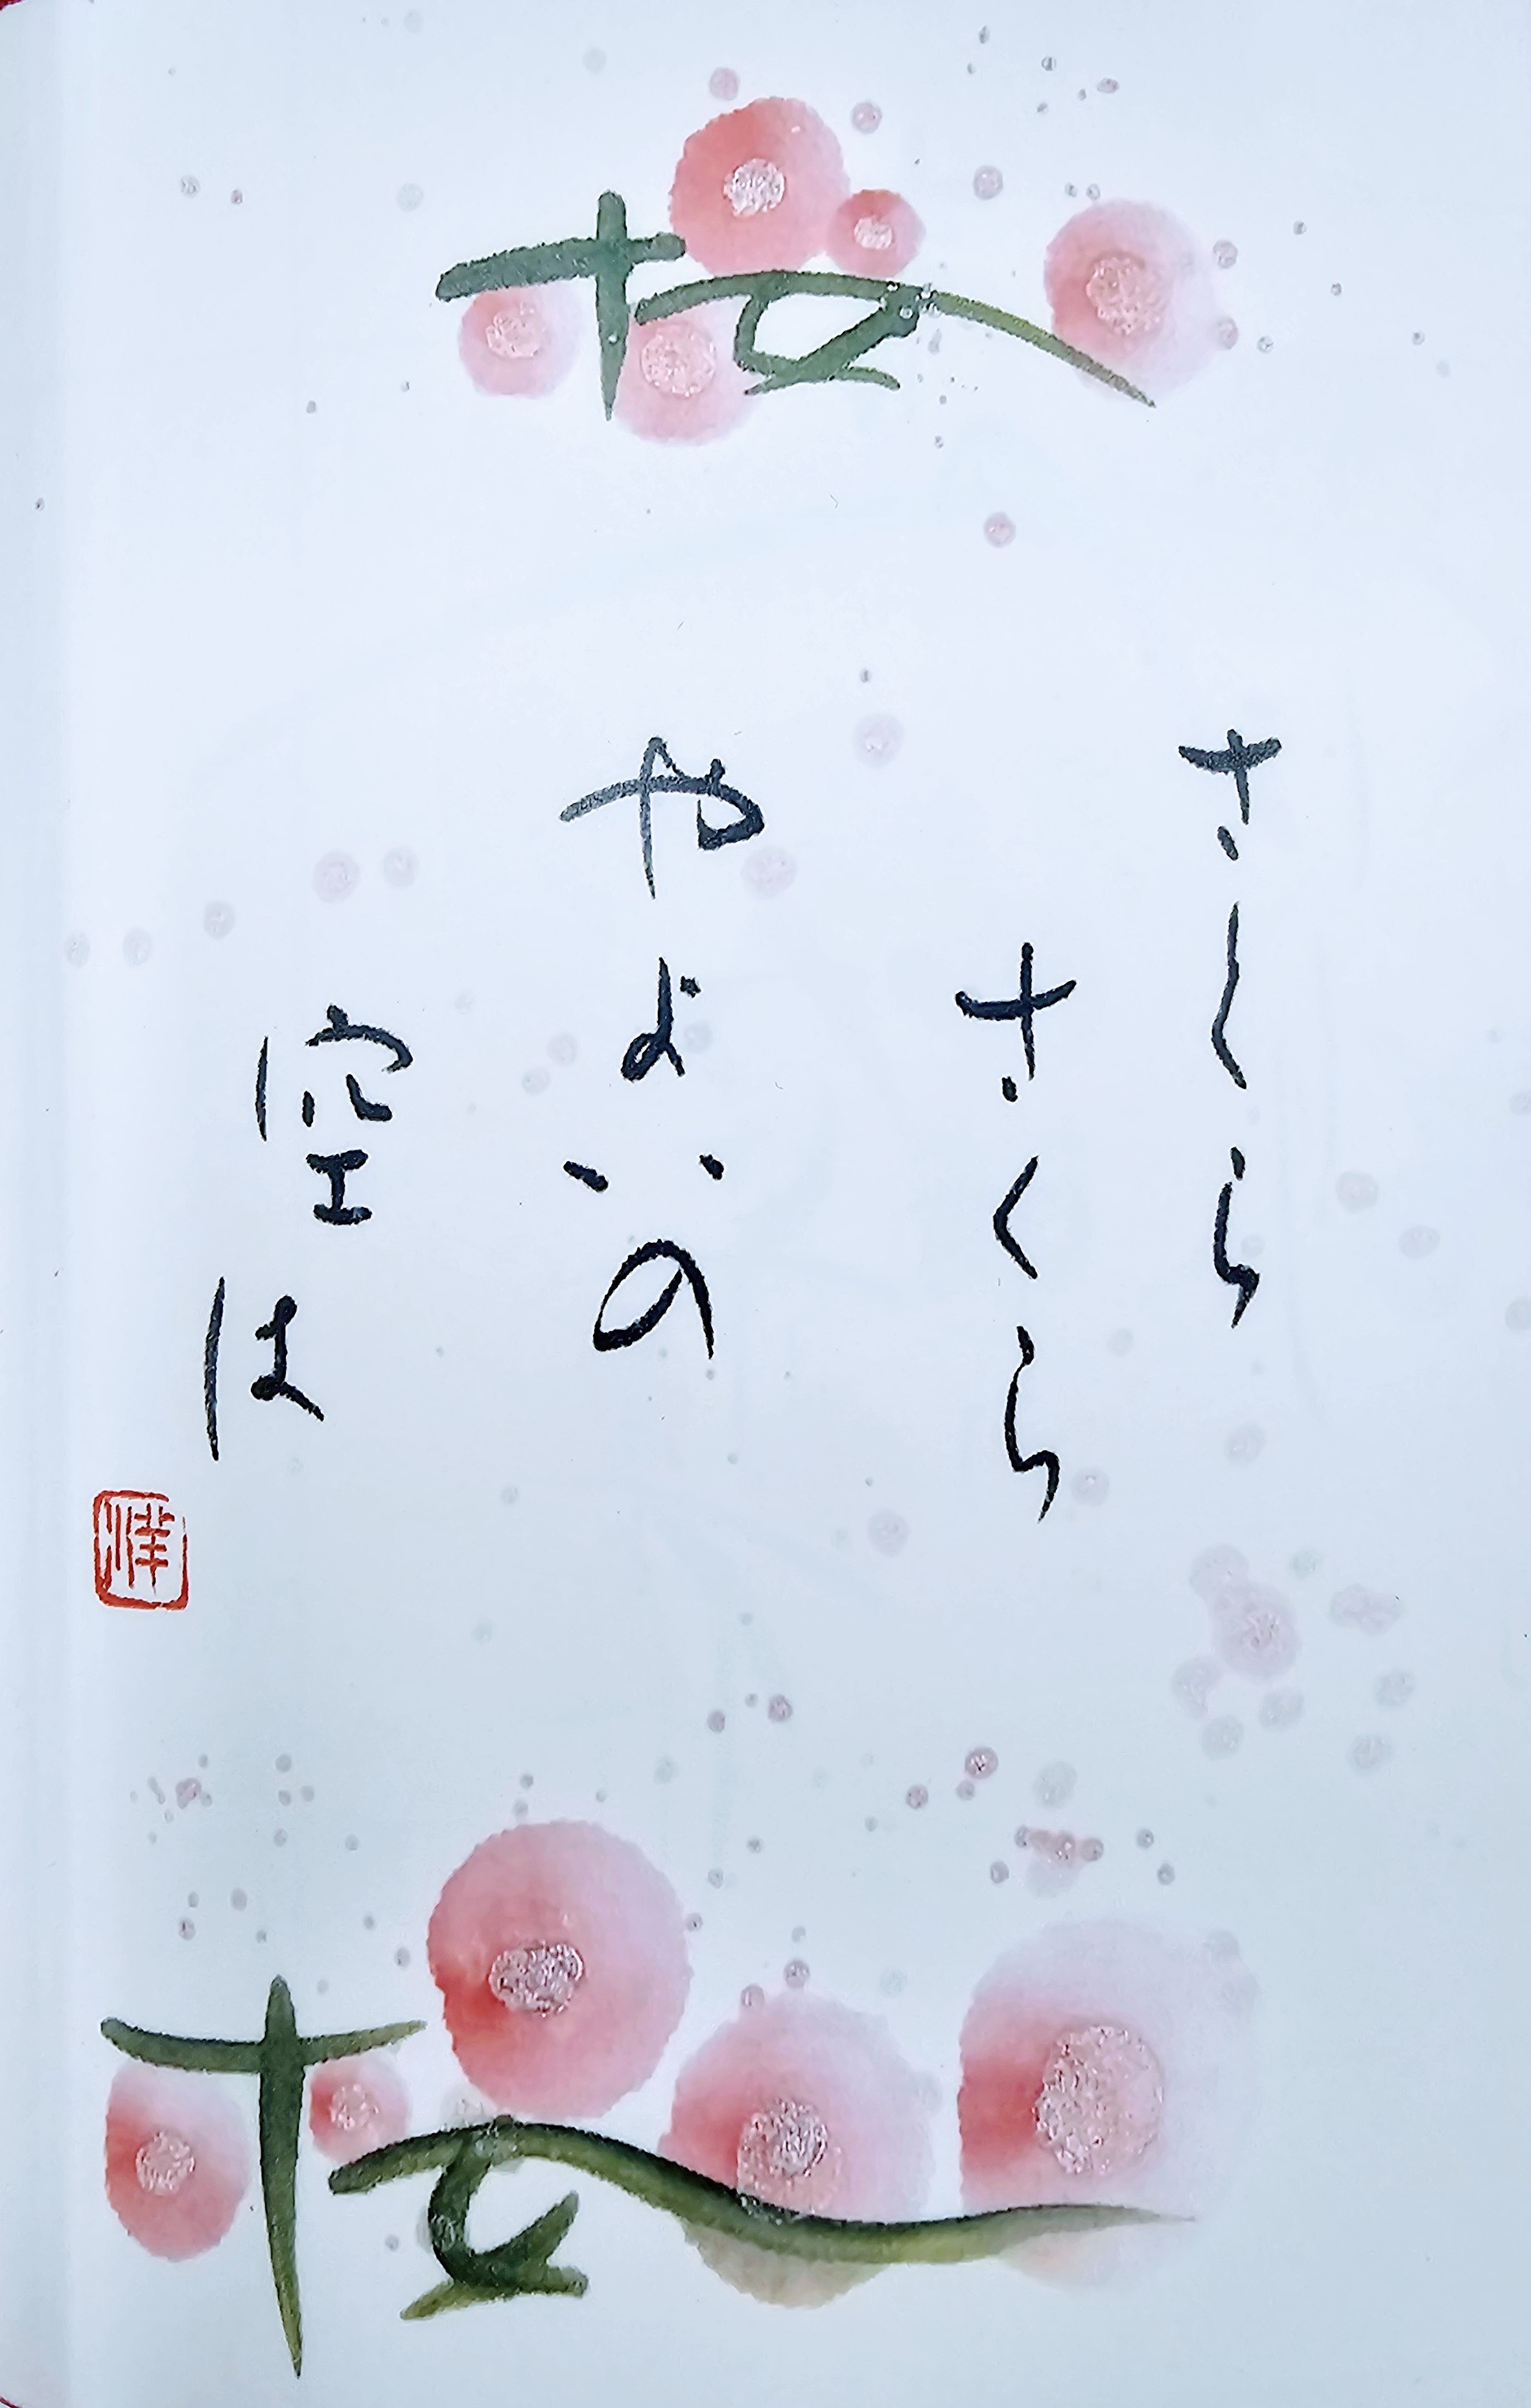 桜
さくら
さくら
やよいの
空は
桜